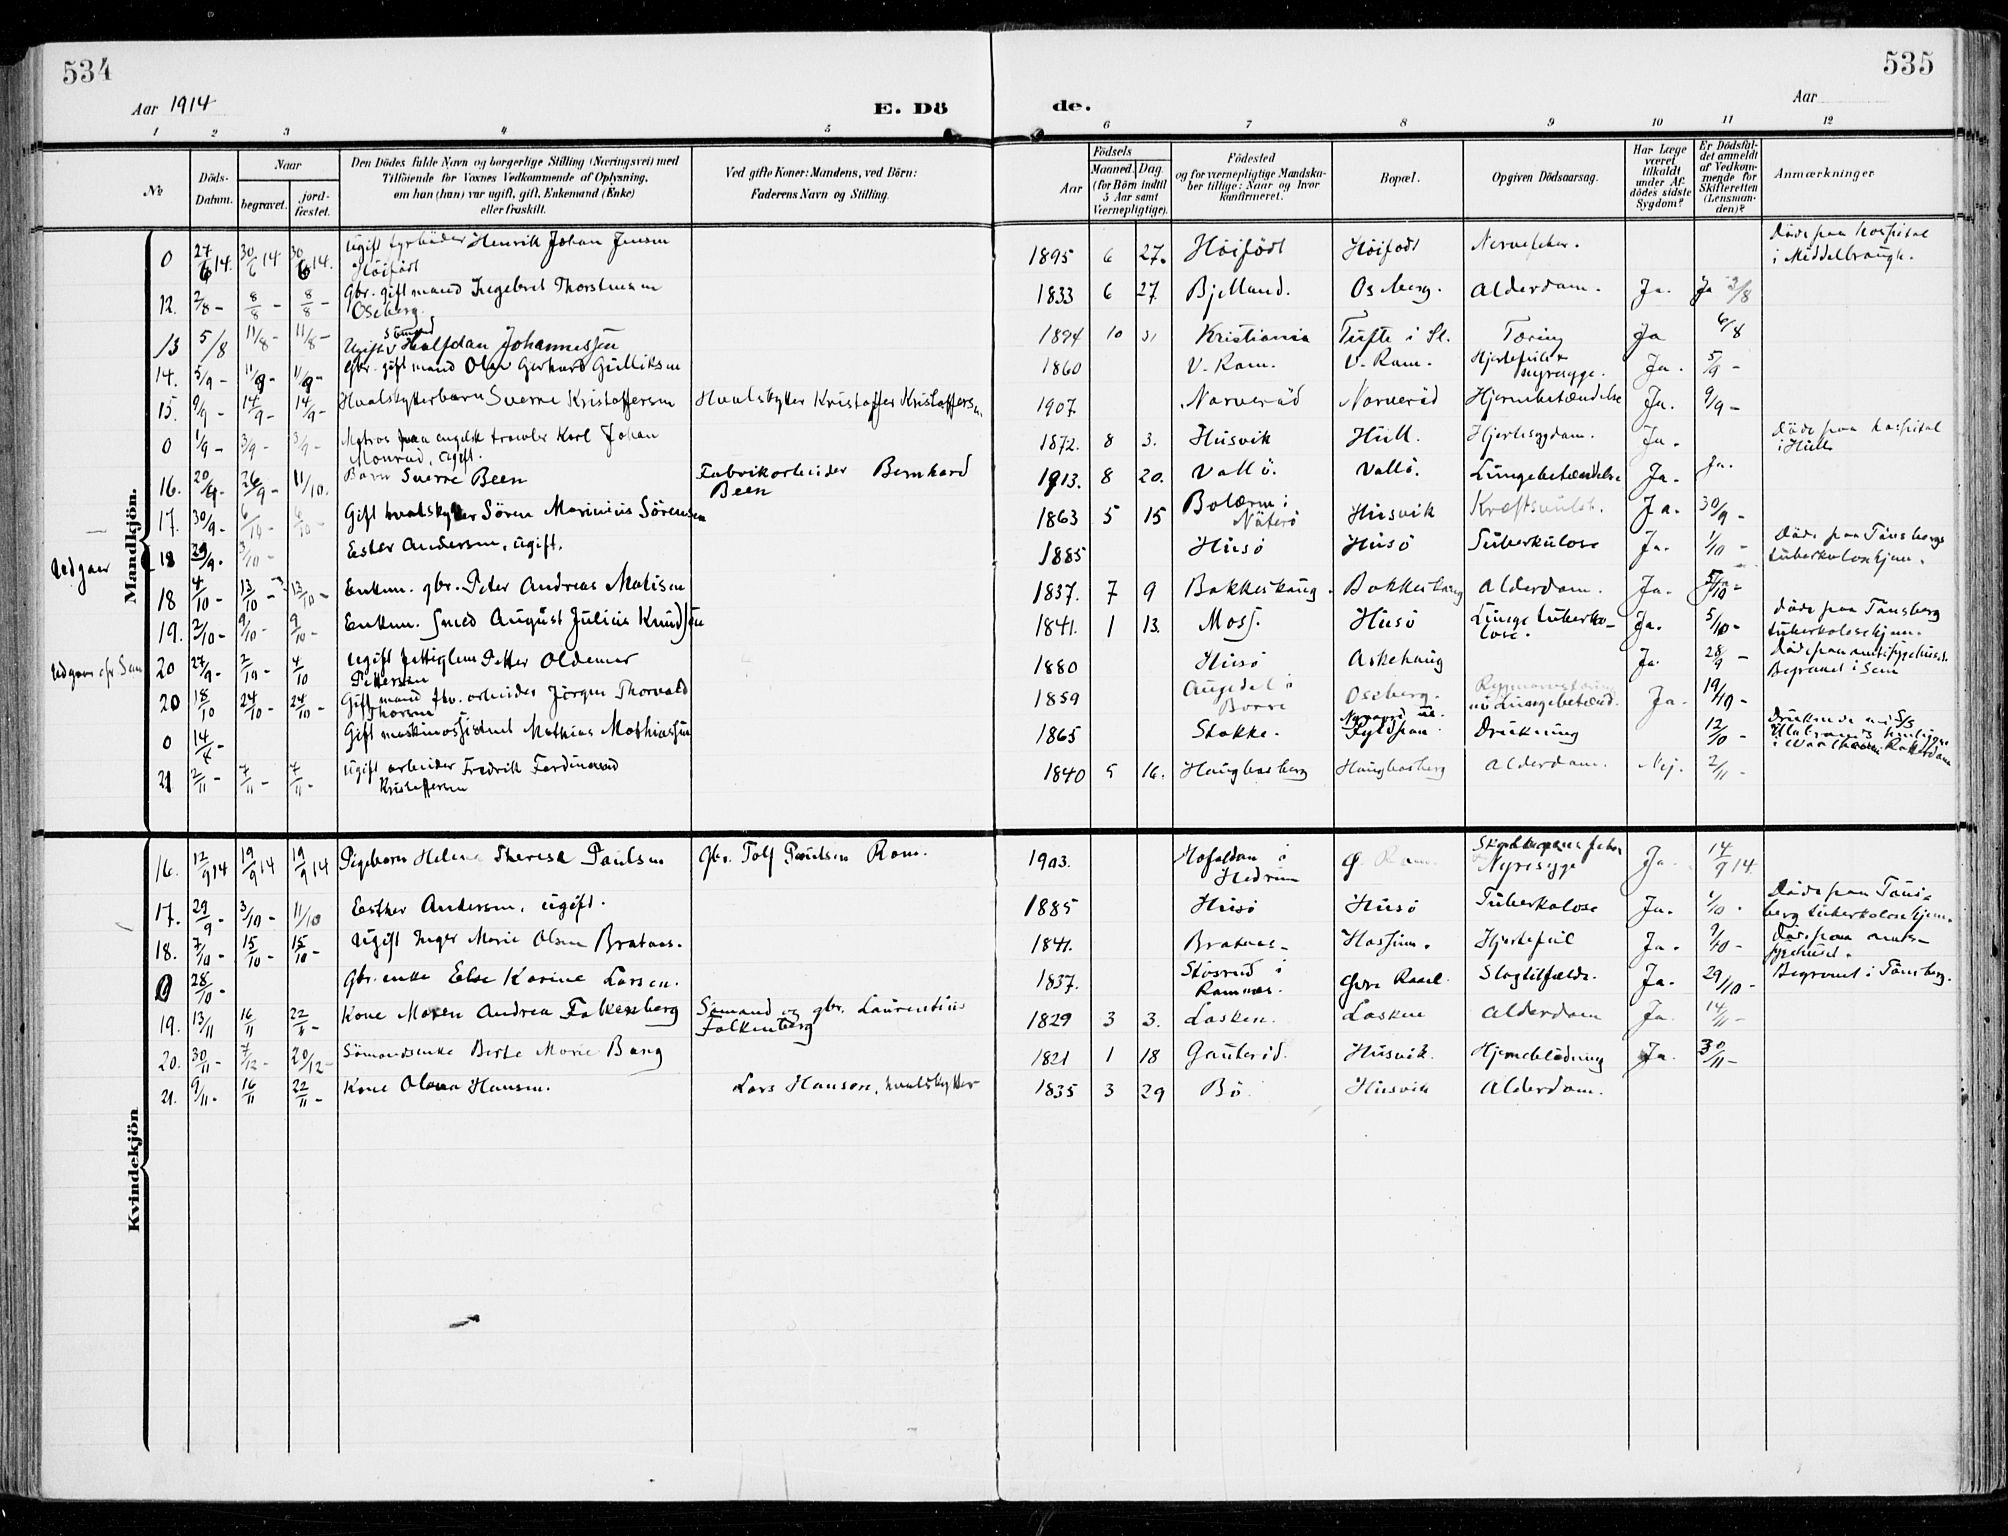 534
535
Aar 1914
E. Dö
de.
Aar
1 2 3 4 5 6 7 8 9 10 11 12
No
Döds-Datum.
Naar
begravet.
jord-fæstet.
Den Dödes fulde Navn og borgerlige Stilling (Næringsvei) med
Tilföiende for Voxnes Vedkommende af Oplysning,
om han (hun) var ugift, gift, Enkemand (Enke)
eller fraskilt.
Ved gifte Koner: Mandens, ved Börn:
Faderens Navn og Stilling.
Födsels
Aar
Maaned. Dag.
(for Börn indtil
5 Aar samt
Værnepligtige).
Födested
og for værnepligtige Mandska-
ber tillige: Naar og hvor
konfirmeret.
Bopæl.
Opgiven Dödsaarsag.
Har Læge
været
tilkaldt
under Af-
dödes sidste
Sygdom?
Er Dödsfal-
det anmeldt
af Vedkom-
mende for
Skifteretten
(Lensman-
den)?
Anmærkninger
Mandkjön.
0 27/6 14. 30/6 14 30/6 14. Ugift fyrböder Henrik Johan Jensen Höifödt 1895 6 27. Höifödt Höifödt Nervefeber. Döde paa hospital i Middelbrough.
12. 2/8 - 8/8 - 8/8 - Gbr. gift mand Ingebret Thorstensen Oseberg. 1833 6 27 Bjelland. Oseberg. Alderdom. Ja. Ja 3/8
13 5/8 11/8 - 11/8 - Ugift Sömand Halfdan Johannessen 1894 10 31 Kristiania Tufte i Sl. Tæring Ja 6/8
14. 5/9 - 11/9 - 11/9 - Gbr. gift mand Olav Gerhard Gulliksen 1860 V. Ram. V. Ram. Hjertefeil + nyresyge. Ja. 5/9 -
15. 9/9 - 14/9 - 14/9 - Hvalskytterbarn Sverre Kristoffersen Hvalskytter Kristoffer Kristoffersen 1907 Narveröd Narveröd Hjernebetændelse Ja. 9/9 -
0 1/9 - 3/9 - 3/9 - Matros paa engelsk trawler Karl Johan Monrad, ugift. 1872. 8 3. Husvik Hull. Hjertesygdom. Ja. Döde paa hospital i Hull
16. 20/9 - 26/9 - 11/10. Barn Sverre Been Fabrikarbeider Bernhard Been 1913. 8 20. Vallö. Vallö. Lungebetændelse Ja. Ja.
17. 30/9 - 6/10 - 6/10 - Gift hvalskytter Sören Marinius Sörensen 1863 5 15 Bolærne i Nöterö Husvik Kreftsvulst. Ja. 30/9 -
Udgaar 18 29/9 - 3/10 - Ester Andersen, ugift. 1885 Husö Husö Tuberkulose Ja. 1/10 - Döde paa Tönsbergs tuberkolosehjem.
18 4/10 - 13/10 - 13/10 - Enkem. gbr. Peter Andreas Matisen 1837. 7 9 Bakkeskaug. Bakkeskaug Alderdom. Ja. 5/10 -
19. 2/10 - 9/10 - 9/10 - Enkem. Smed August Julius Knudsen 1841. 1 13. Moss. Husö Lunge tuberkolose. Ja. 5/10 - Döde paa Tönsberg tuberkolosehjem.
Udgaar ofr Sem 20 27/9 - 2/10 - 4/10 Ugift Petter Oldemar Pettersen 1880 Husö Askehaug Ja. 28/9 - Döde paa amtssygehuset. Begravet i Sem
20 18/10 24/10 - 24/10 - Gift mand fhv. arbeider Jörgen Thorvald Thorsen 1859 Augedal i Borre Oseberg. Rygmarvstæring m. Lungebetænd. Ja. 19/10 -
0 14/4 - Gift maskinassistent Mathias Mathiassen 1865 Stokke. Drukning 12/10 -
21 2/11 - 7/11 - 7/11 - Ugift arbeider Fredrik Ferdinand Kristoffersen 1840 5 16. Haugbarberg Haugbarberg Alderdom. Nej. 2/11 -
Kvindekjön
16. 12/9 14 19/9 14 19/9 14 Pigebarn Helene Theresa Paulsen Gbr. Tolf Paulsen Ram. 1903. Hafaldan i Hedrum Ø. Ram. Skarlagensfeber Nyresyge Ja. 14/9 14.
17. 29/9 - 3/10 - 11/10 Esther Andersen, ugift. 1885 Husö Husö Tuberkolose Ja. 1/10 - Döde paa Tönsberg tuberkolosehjem.
18. 7/10 - 15/10 - 15/10 - Ugift Inger Marie Olsen Brataas. 1841. Brataas. Hassum. Hjertefeil Ja. 9/10 - Döde paa amtssygehuset.
0 28/10 - Gbr. enke Else Karine Larsen. 1837. Skösrud i Ramnes. Øvre Raael. Slagtilfælde. Ja. 29/10 - Begravet i Tönsberg.
19. 13/11 16/11 22/11 - Kone Maren Andrea Falkenberg Sömand og gbr. Laurentius Falkenberg 1829 3 3. Lasken. Lasken Alderdom Ja. 14/11 -
20. 30/11 - 7/12 - 20/12 - Sömandsenke Berte Marie Bang 1821 1 18 Gauteröd. Husvik. Hjerneblödning Ja. 30/11 -
21. 9/11 - 16/11 22/11 - Kone Olava Hansen. Lars Hansen, hvalskytter 1835 3 29 Bö. Husvik Alderdom.